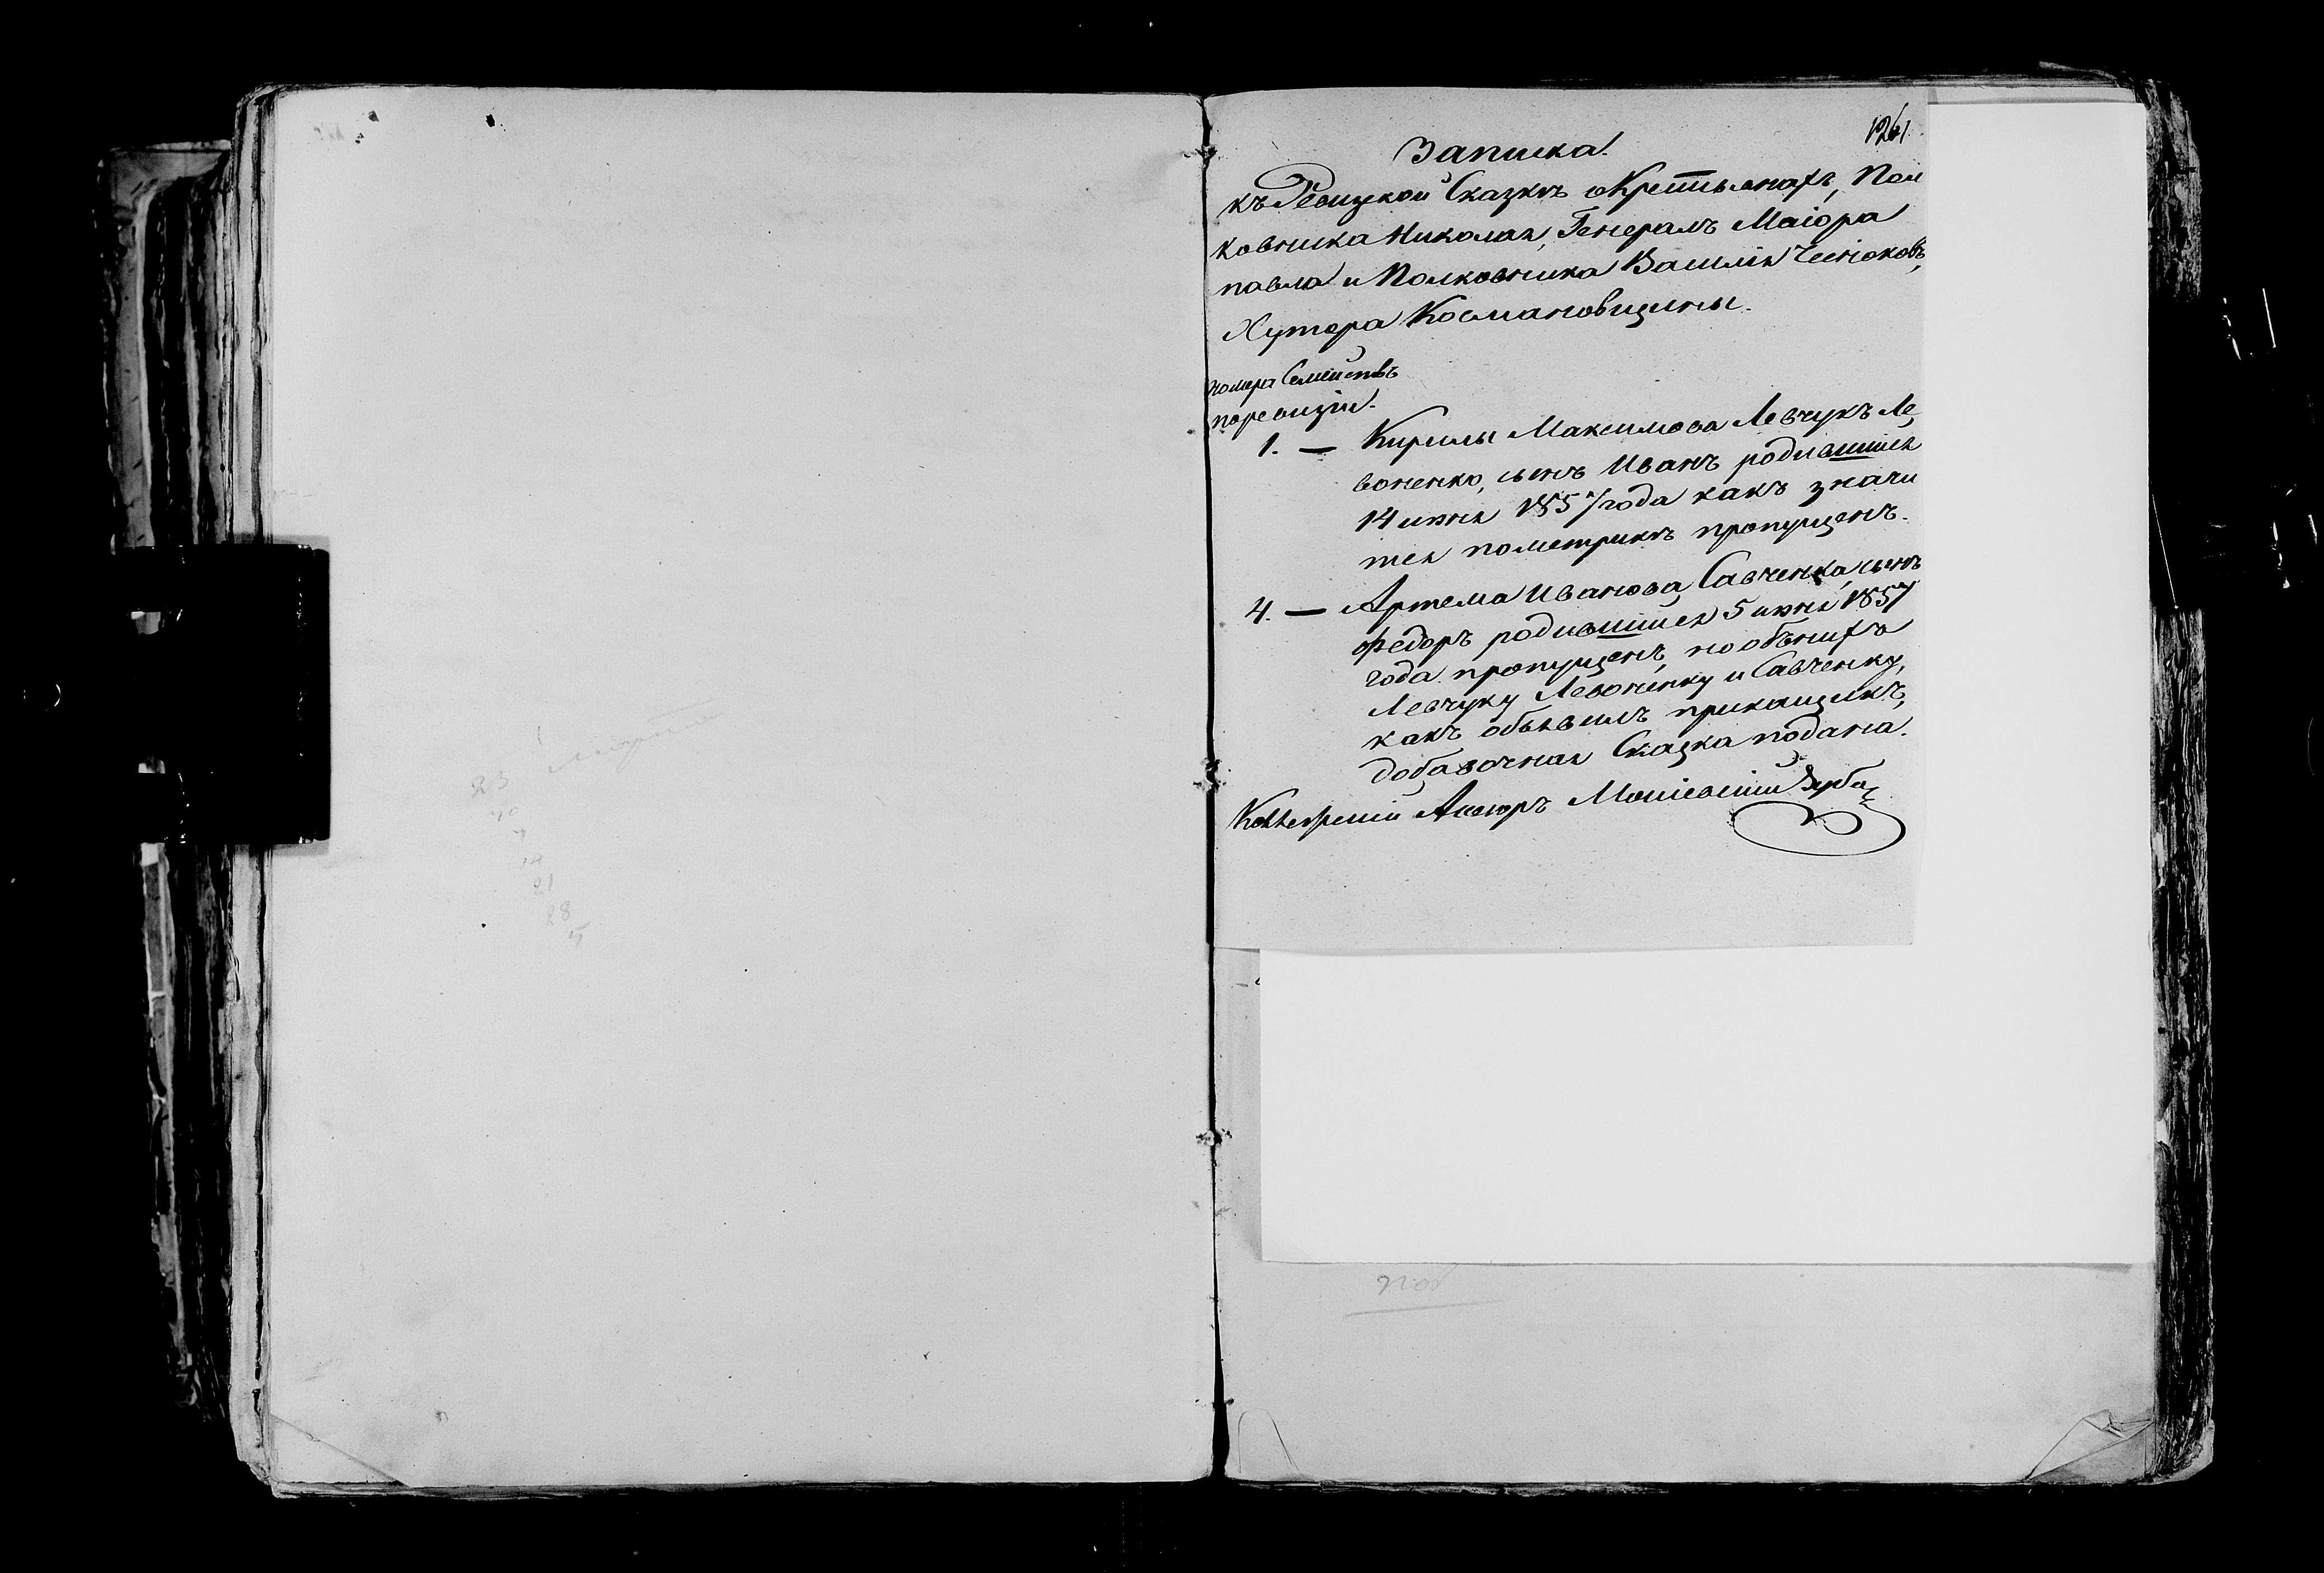 1261
Записка.
къ Ревизской Сказкѣ о Крестьянахъ, Пол
ковника Николая, Генералъ Маіора
павла и Полковника Василія Чесноковъ,
Хутора Космановщины.
номера Семействъ
поревизіи.
1. — Кирилы Максимова Левчукъ Ле
воненко, сынъ Иванъ родившійся
14 июня 1857 года какъ значи
тся пометрикѣ пропущенъ.
4. — Артема Иванова Савченка, сынъ
Федоръ родившійся 5 июня 1857
года пропущенъ, но объ нихъ
Левчуку Левоненку и Савченку,
какъ объявилъ прикащикъ,
добавочная Сказка подана.
Ассесоръ
23
21
28